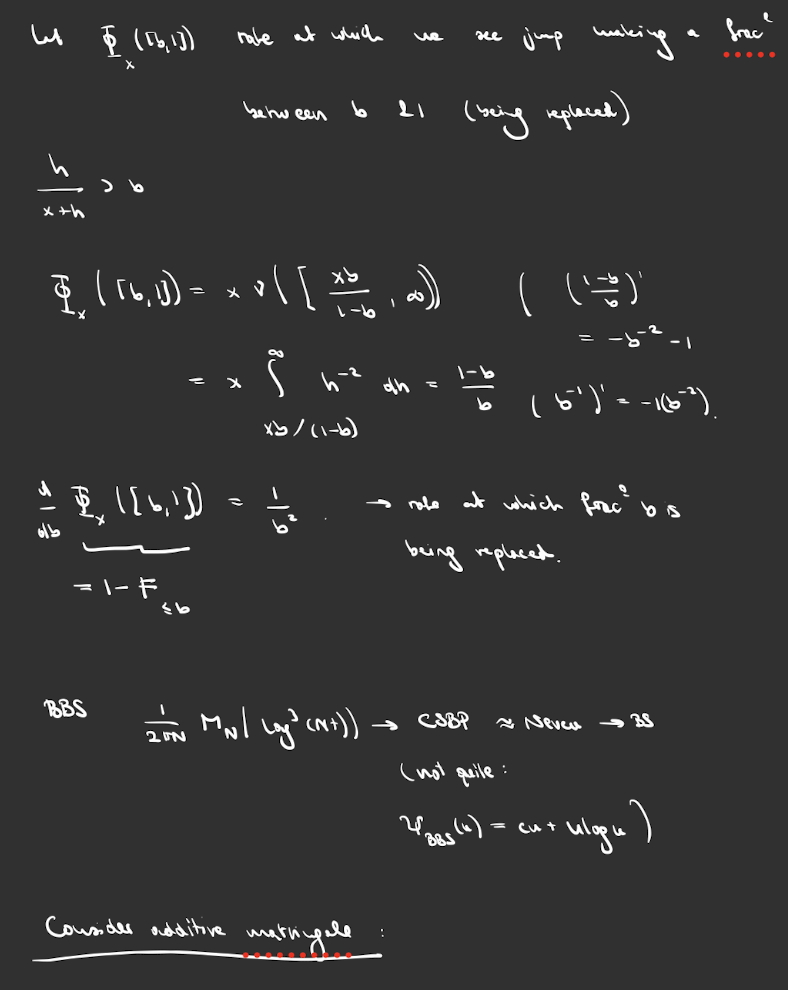 Let Φ_x([b,1]) rate at which we see jump making a frac°
between b & 1 (being replaced)
h/(x+h) > b
Φ_x([b,1]) = x ν([xb/(1-b), ∞)) ( ((1-b)/b)'
= -b^{-2} - 1
= x ∫_{xb/(1-b)}^∞ h^{-2} dh = (1-b)/b (b^{-1})' = -1(b^{-2}).
d/db Φ_x([b,1]) = 1/b². → rate at which frac° b is
being replaced.
= 1 - F_{≤b}
BBS 1/(2πN) M_N(log³(Nt)) → CSBP ≈ Neveu → BS
(not quite:
Ψ_BBS(u) = cu + u log u)
Consider additive matringale :